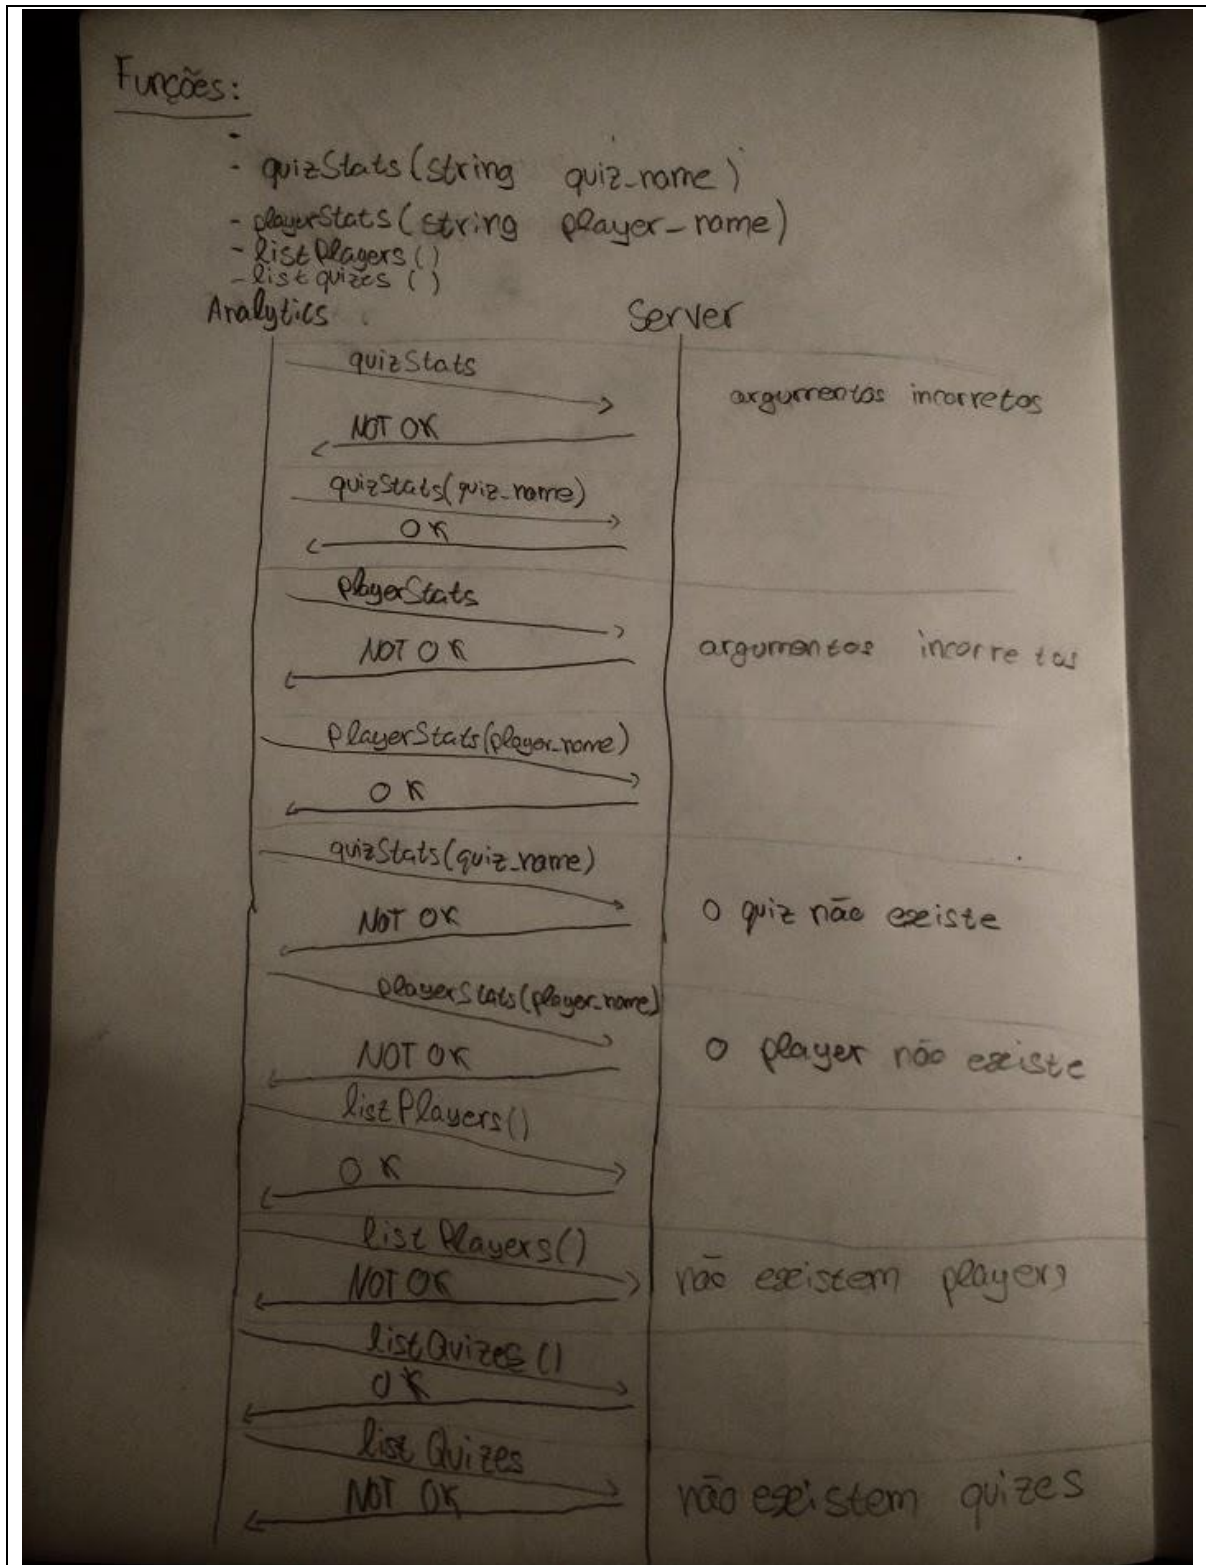 Funções:
-
- quizStats(string quiz_name)
- playerStats(string player_name)
- listPlayers()
- listquizes()
Analytics Server
quizStats
argumentos incorretos
NOT OK
quizStats(quiz_name)
OK
playerStats
NOT OK argumentos incorretos
PlayerStats(player_name)
OK
quizStats(quiz_name)
NOT OK O quiz não existe
playerStats(player_name)
NOT OK O player não existe
listPlayers()
OK
listPlayers()
NOT OK não existem players
listQuizes()
OK
listQuizes
NOT OK não existem quizes